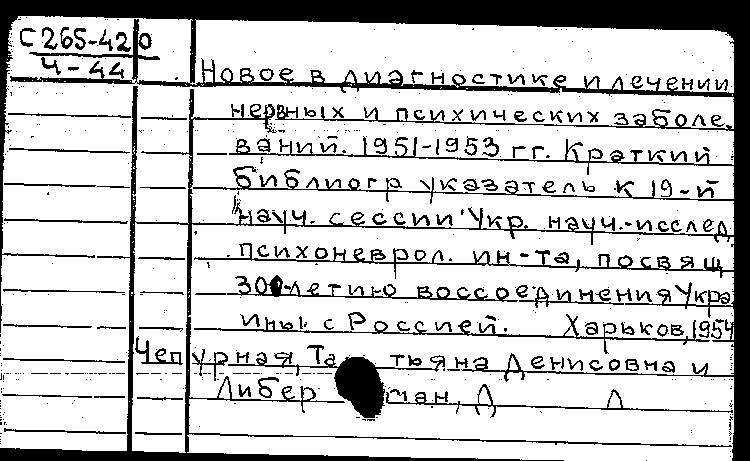 С 265-420
Ч-44
Новое в диагностике и лечении
нервных и психических заболе.
ваний. 1951-1953 гг. Краткий
библиогр указатель к 19-й
науч. сессии Укр. науч.-исслед
психоневрол. ин-та, посвящ
300-летию воссоединения Укра
ины с Россией. Харьков, 1954
Чепурная, Татьяна Денисовна и
Либерман, Д Л